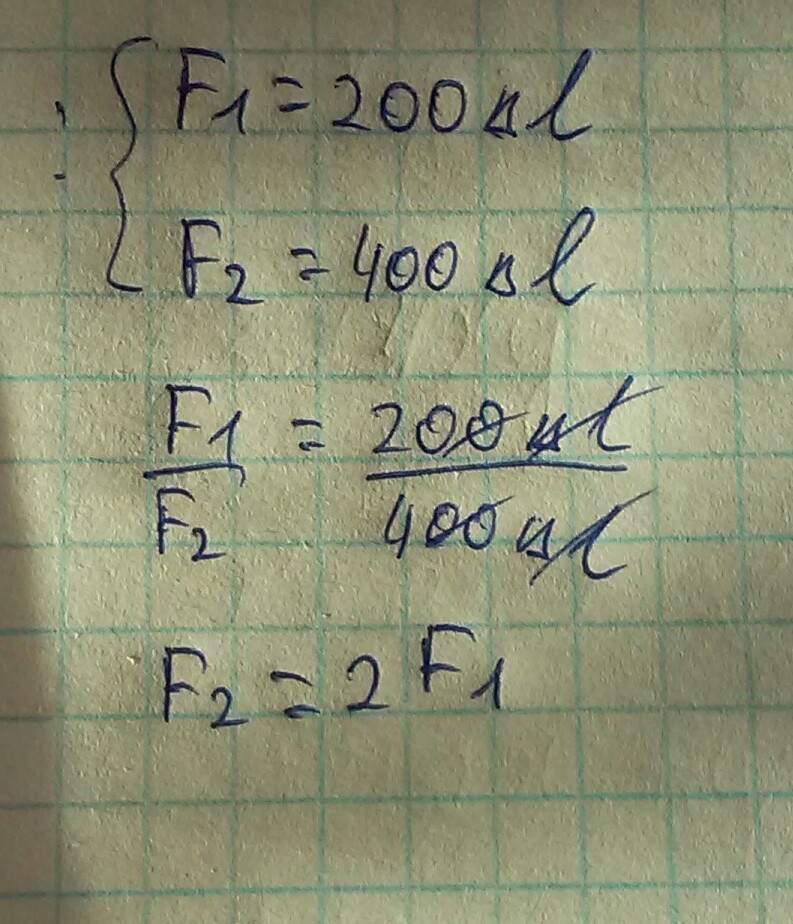 : { F1 = 200 Δl
F2 = 400 Δl
F1 / F2 = 200 Δl / 400 Δl
F2 = 2 F1